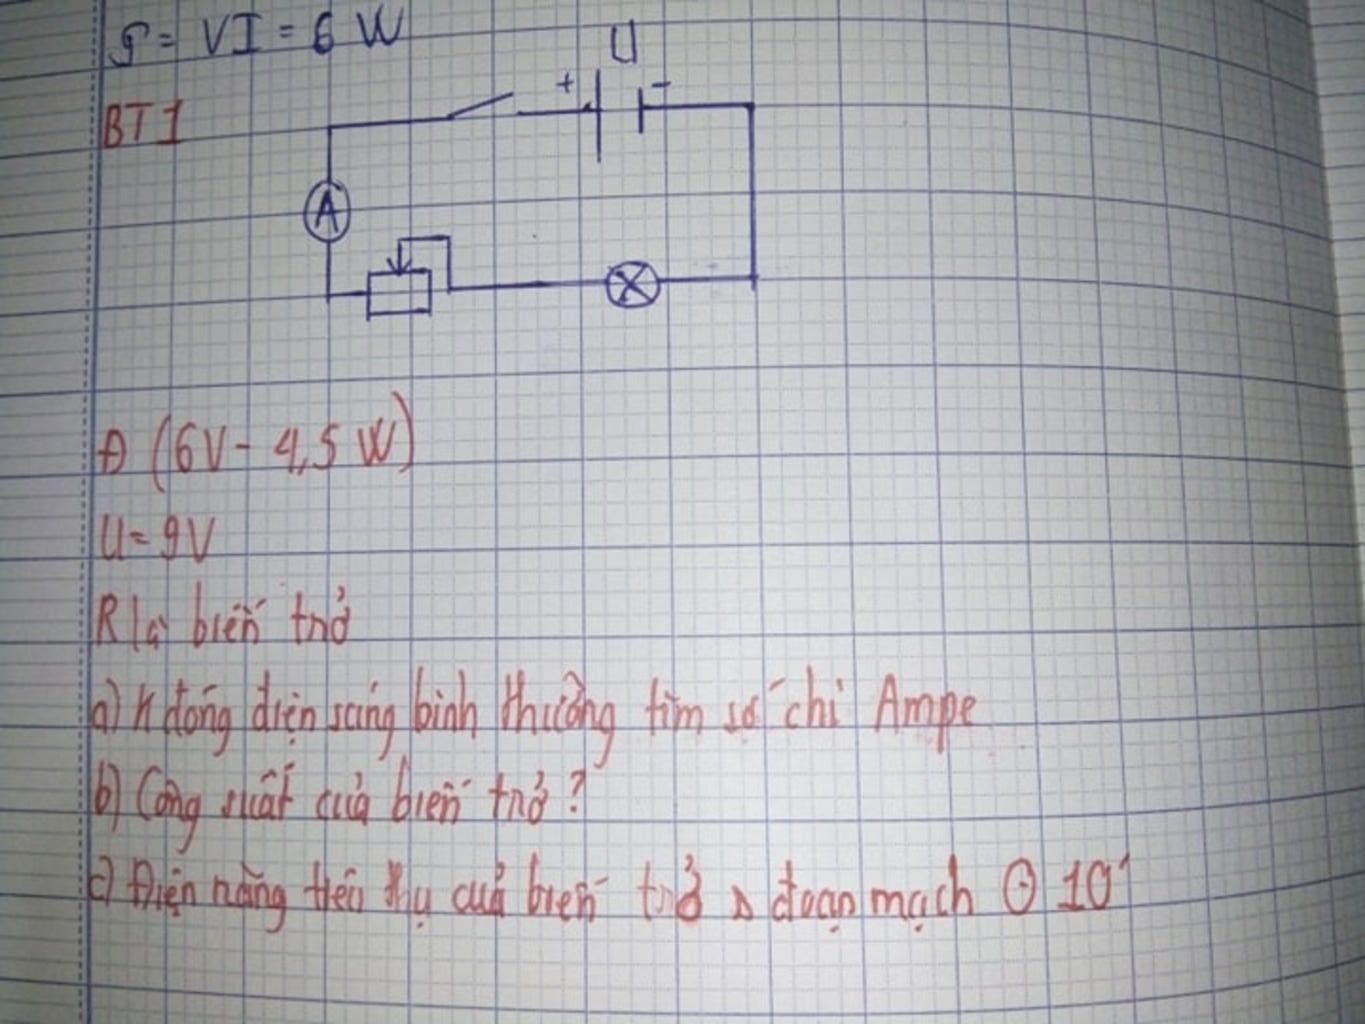 𝒫 = VI = 6 W
U
+ -
BT1
A
Đ (6V - 4,5 W)
U = 9V
R là biến trở
a) K đóng điện sáng bình thường tìm số chỉ Ampe
b) Công suất của biến trở ?
c) Điện năng tiêu thụ của biến trở & đoạn mạch ⊙ 10'